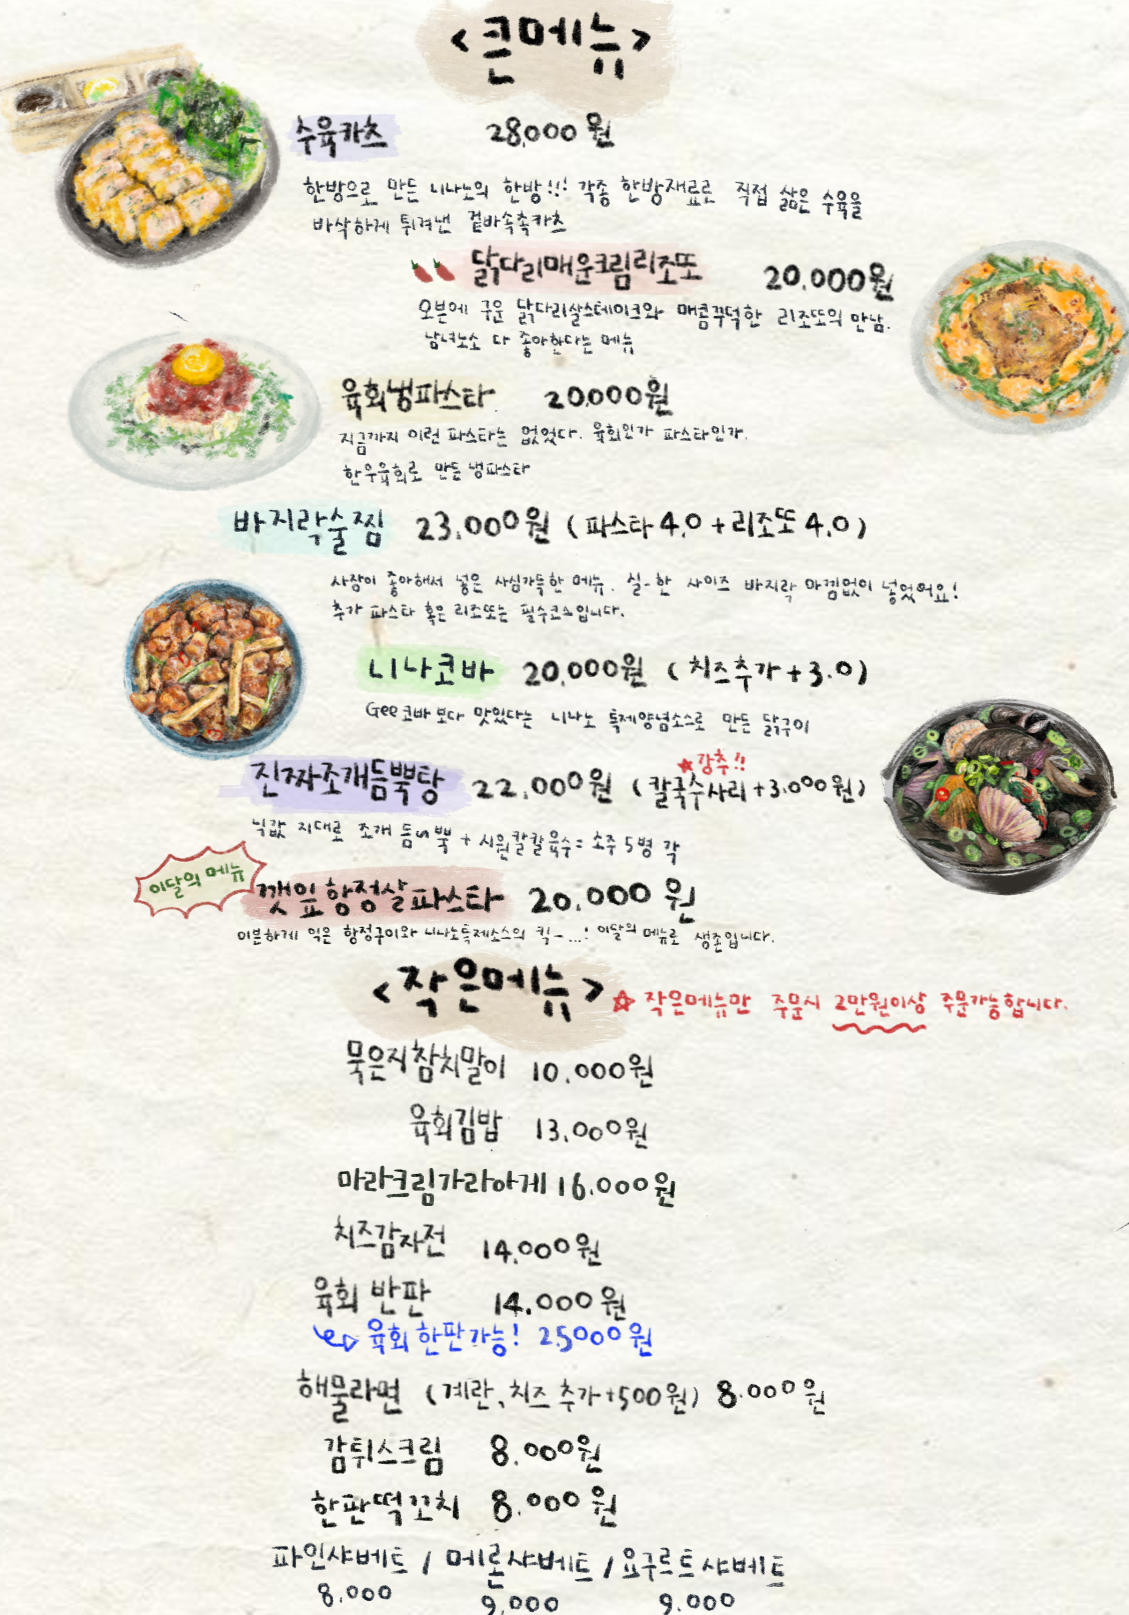 <큰메뉴>
수육카츠 28,000원
한방으로 만든 니나노의 한방!!! 각종 한방재료로 직접 삶은 수육을
바삭하게 튀겨낸 겉바속촉카츠
닭다리매운크림리조또 20.000원
오븐에 구운 닭다리살스테이크와 매콤꾸덕한 리조또의 만남.
남녀노소 다 좋아한다는 메뉴
육회냉파스타 20.000원
지금까지 이런 파스타는 없었다. 육회인가 파스타인가.
한우육회로 만든 냉파스타
바지락술찜 23.000원 (파스타 4.0 + 리조또 4.0)
사장이 좋아해서 넣은 사심가득한 메뉴. 실-한 사이즈 바지락 아낌없이 넣었어요!
추가 파스타 혹은 리조또는 필수코스입니다.
니나코바 20.000원 (치즈추가+3.0)
Gee코바 보다 맛있다는 니나노 특제양념소스로 만든 닭구이
★강추!!
진짜조개듬뿍탕 22.000원 (칼국수사리+3.000원)
닉값 지대로 조개 듬뿍 + 시원칼칼육수 = 소주 5병 각
이달의 메뉴
깻잎항정살파스타 20.000원
이븐하게 익은 항정구이와 니나노특제소스의 킥-...! 이달의 메뉴로 생존입니다.
<작은메뉴> ☆ 작은메뉴만 주문시 2만원이상 주문가능합니다.
묵은지참치말이 10.000원
육회김밥 13.000원
마라크림가라아게 16.000원
치즈감자전 14.000원
육회 반판 14.000원
육회 한판가능! 25000원
해물라면 (계란, 치즈 추가+500원) 8.000원
감튀스크림 8.000원
한판떡꼬치 8.000원
파인샤베트 / 메론샤베트 / 요구르트샤베트
8.000 9.000 9.000